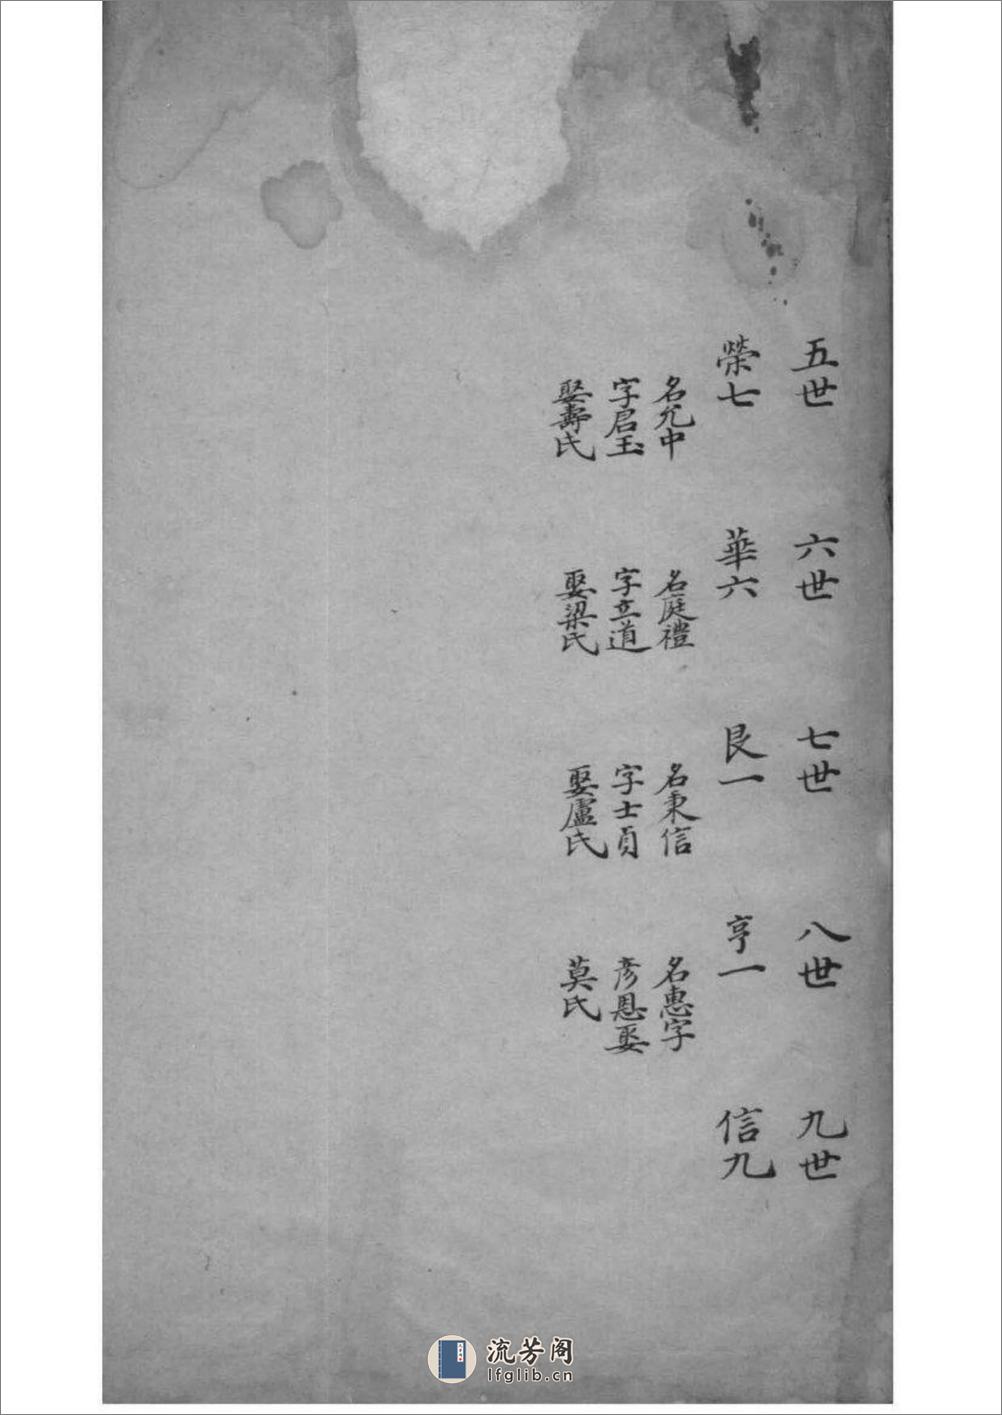 五世
榮七
名允中
字启玉
娶壽氏
六世
華六
名庭禮
字立道
娶梁氏
七世
艮一
名秉信
字士貞
娶盧氏
八世
亨一
名惠字
彥恩娶
莫氏
九世
信九
流芳阁
lfglib.cn